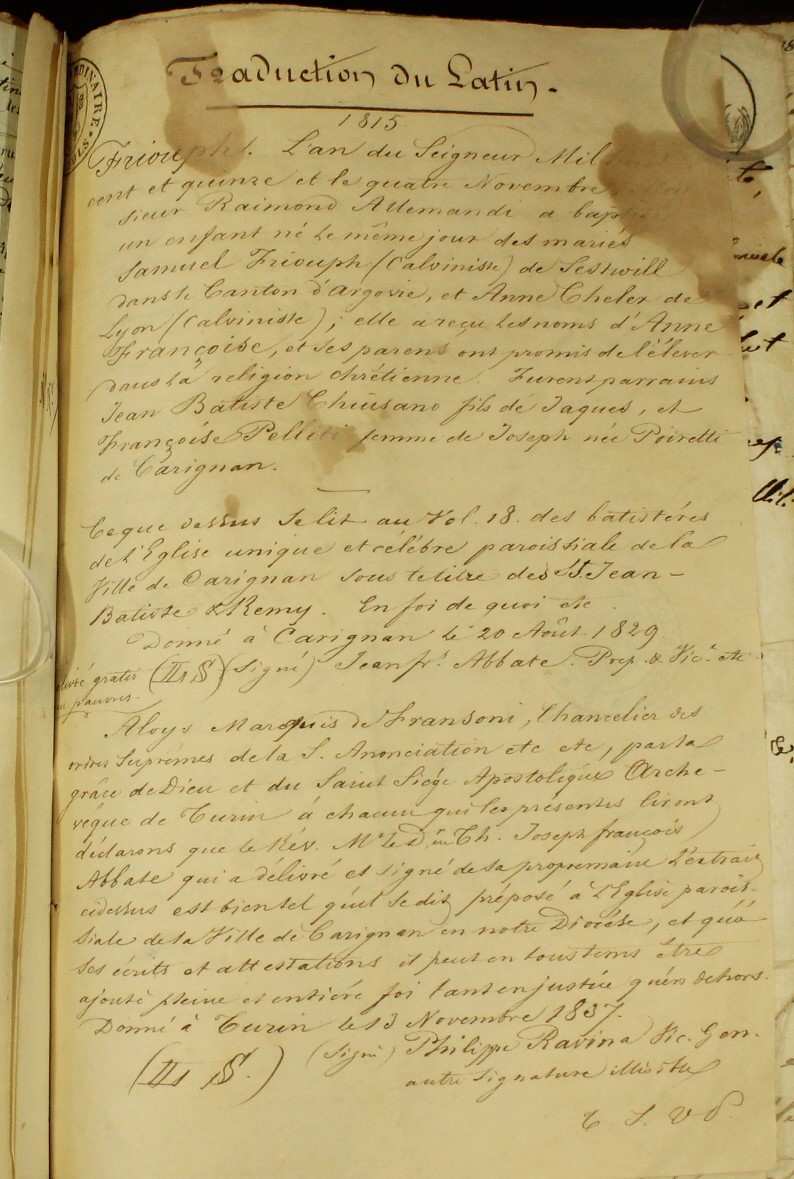 Traduction du Latin.
1815
Friouph /. L'an du Seigneur Mil
cent et quinze et le quatre Novembre,
sieur Raimond Allemandi a bap
un enfant né le même jour des mariés
Samuel Friouph (Calviniste) de Sestwill
dans le Canton d'Argovie, et Anne Cheler de
Lyon (Calviniste); elle a reçu les noms d'Anne
Françoise, et ses parens ont promis de l'élever
dans la religion chrétienne. Furent parrains
Jean Batiste Chiusano fils de Jaques, et
Françoise Pelleti femme de Joseph née Poiretti
de Carignan.
Ce que dessus se lit au Vol. 18. des batistéres
de l'Eglise unique et célébre paroissiale de la
Ville de Carignan sous le titre des St Jean-
Batiste & Remy. En foi de quoi etc
Donné à Carignan le 20 Août 1829
gratis
pauvres.
(Signé) Jean fs. Abbate. Prep. & Vic. etc
Aloys Marquis de Fransoni, Chancelier des
ordres Suprêmes de la S. Anonciation etc etc, par la
grâce de Dieu et du Saint Siége Apostolique Arche-
vêque de Turin à chacun qui les présentes liront
déclarons que le Rév. Mr le D. en Th. Joseph françois
Abbate qui a délivré et signé de sa propre main l'extrait
cidessus est bien tel qu'il se dit, préposé à l'Eglise parois-
siale de la Ville de Carignan en notre Diocése, et qu'à
ses écrits et attestations il peut en tous tems être
ajouté pleine et entiére foi tant en justice qu'en dehors.
Donné à Turin le 13 Novembre 1837.
(Signé) Philippe Ravina Vic. Gen.
autre signature illisible
T. S. V. P.